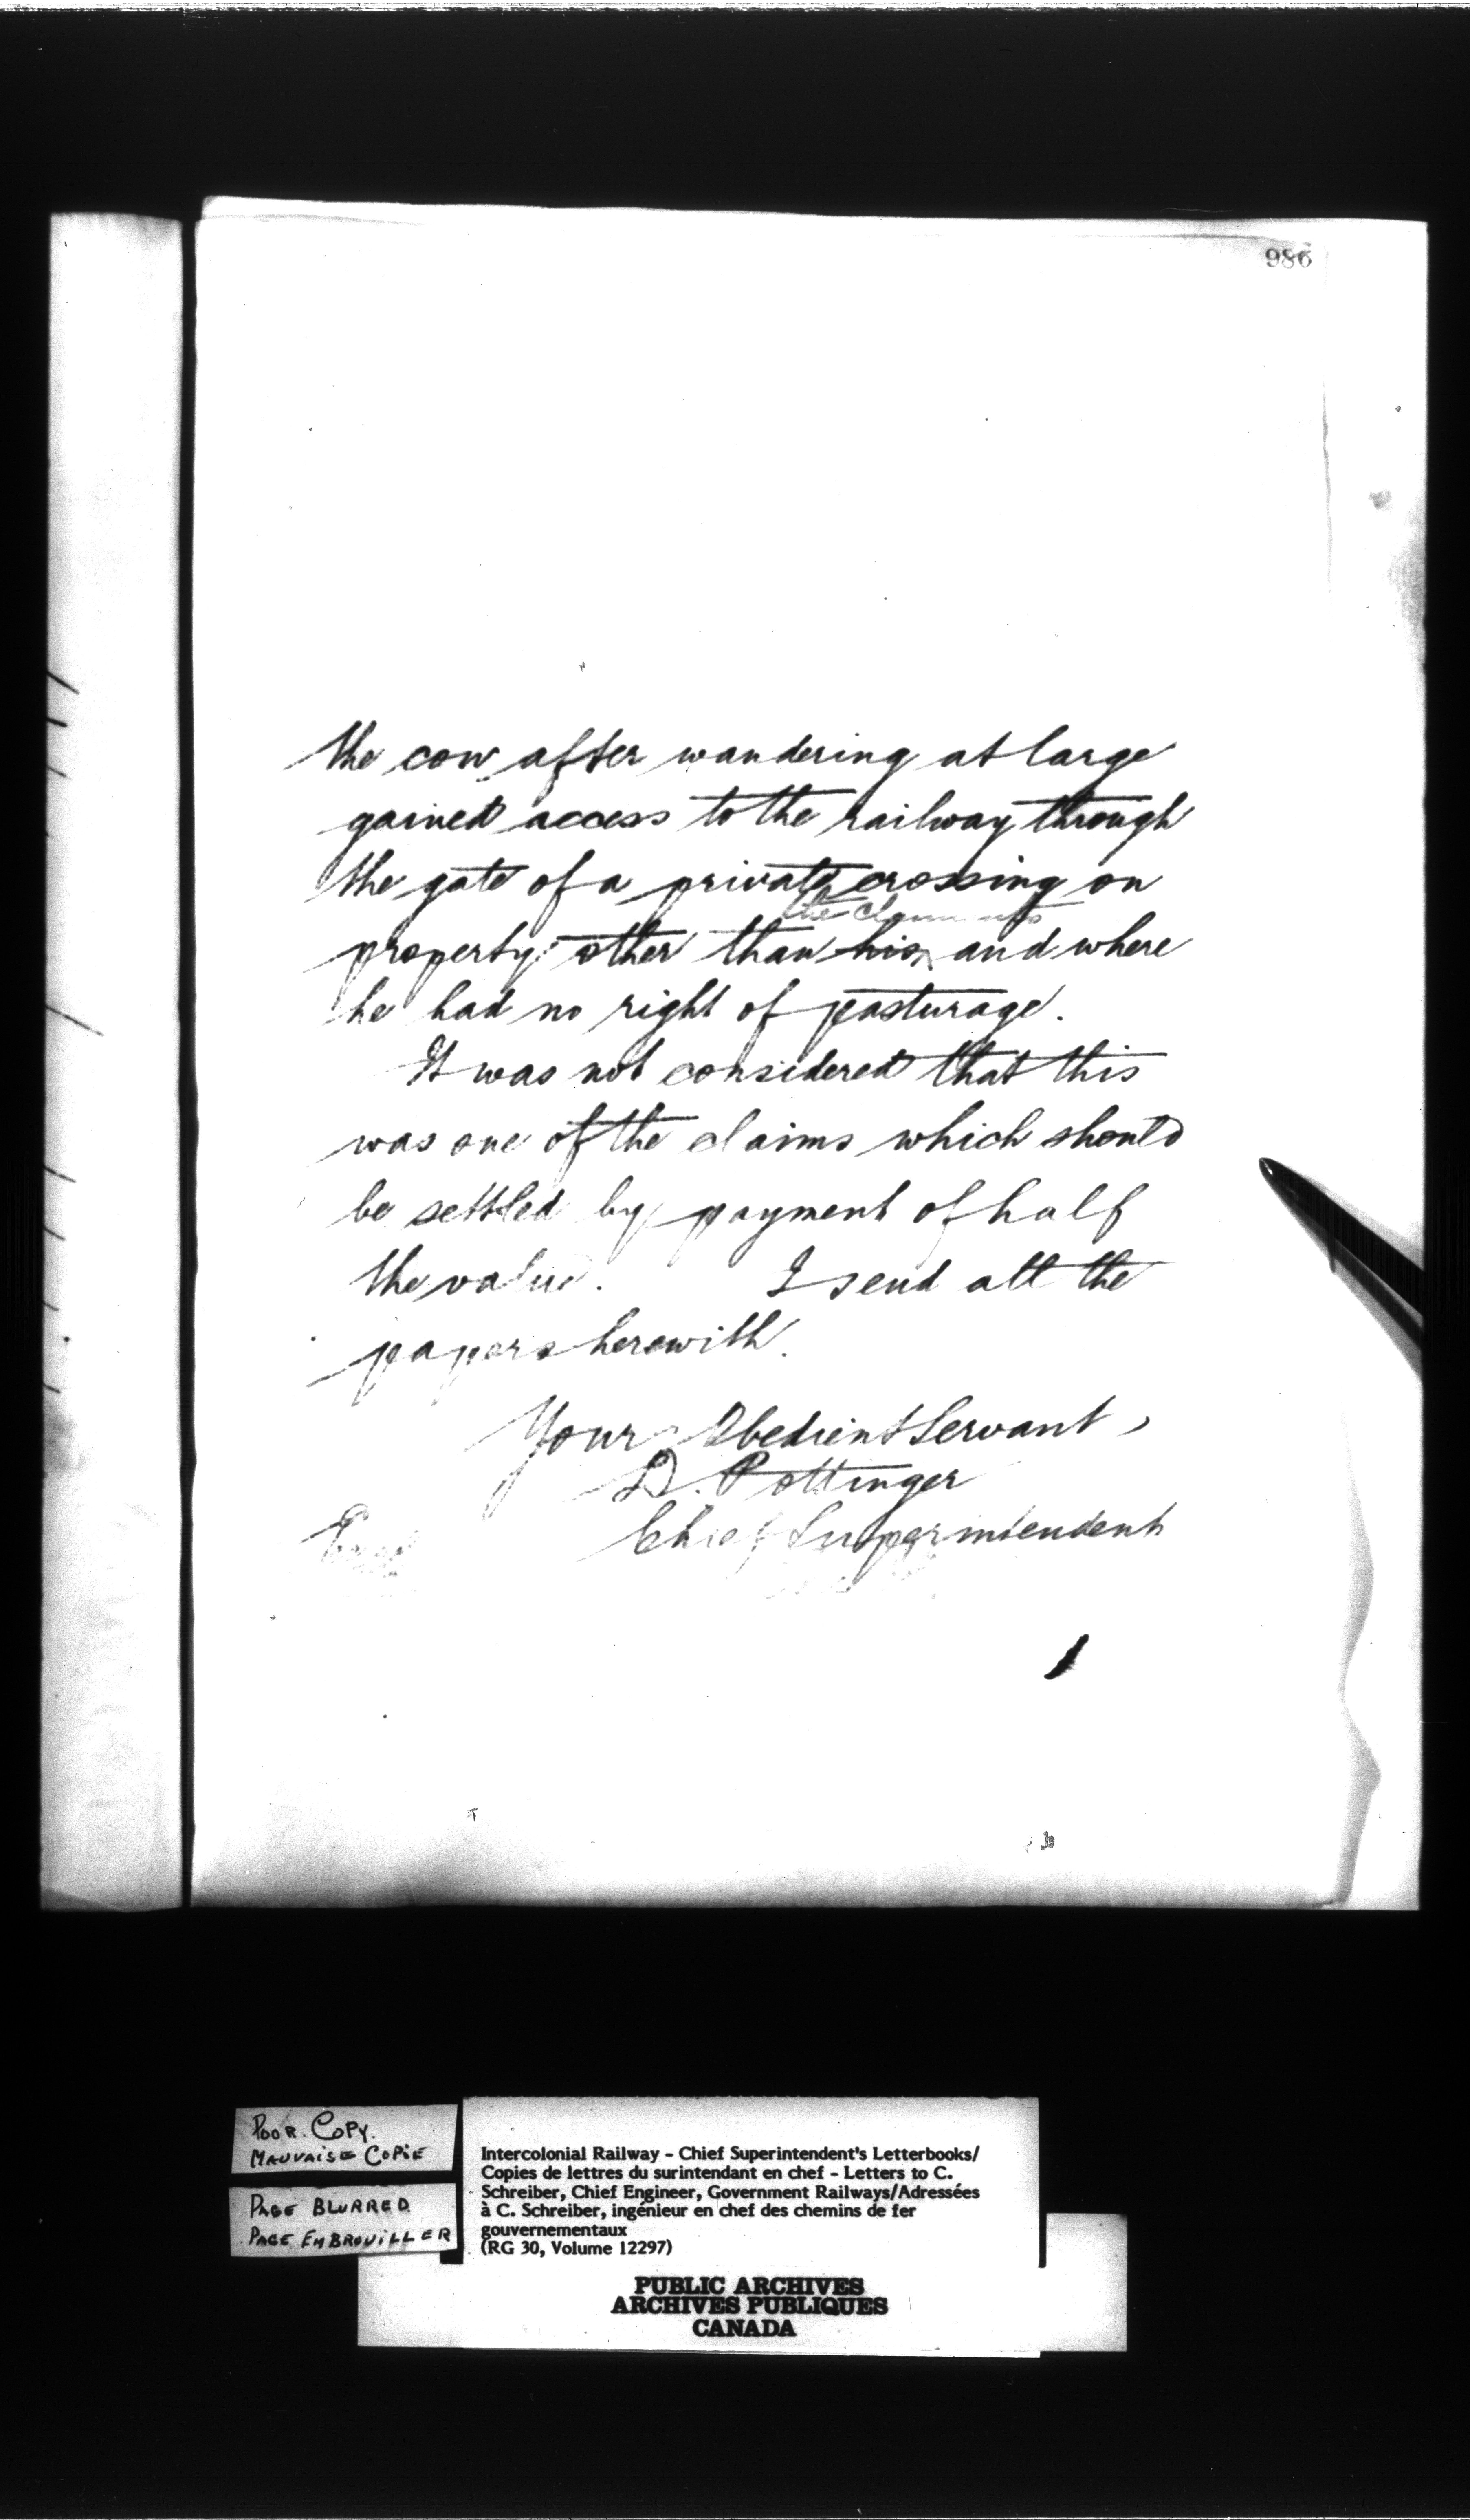 986
the cow after wandering at large
gained access to the railway through
the gate of a private crossing on
the claimants
property other than his and where
he had no right of pasturage.
It was not considered that this
was one of the claims which should
be settled by payment of half
the value. I send all the
papers herewith.
Your Obedient Servant,
D. Pottinger
Chief Superintendent
POOR COPY.
MAUVAISE COPIE
PAGE BLURRED
PAGE EMBROUILLER
Intercolonial Railway - Chief Superintendent's Letterbooks/
Copies de lettres du surintendant en chef - Letters to C.
Schreiber, Chief Engineer, Government Railways/Adressées
à C. Schreiber, ingénieur en chef des chemins de fer
gouvernementaux
(RG 30, Volume 12297)
PUBLIC ARCHIVES
ARCHIVES PUBLIQUES
CANADA